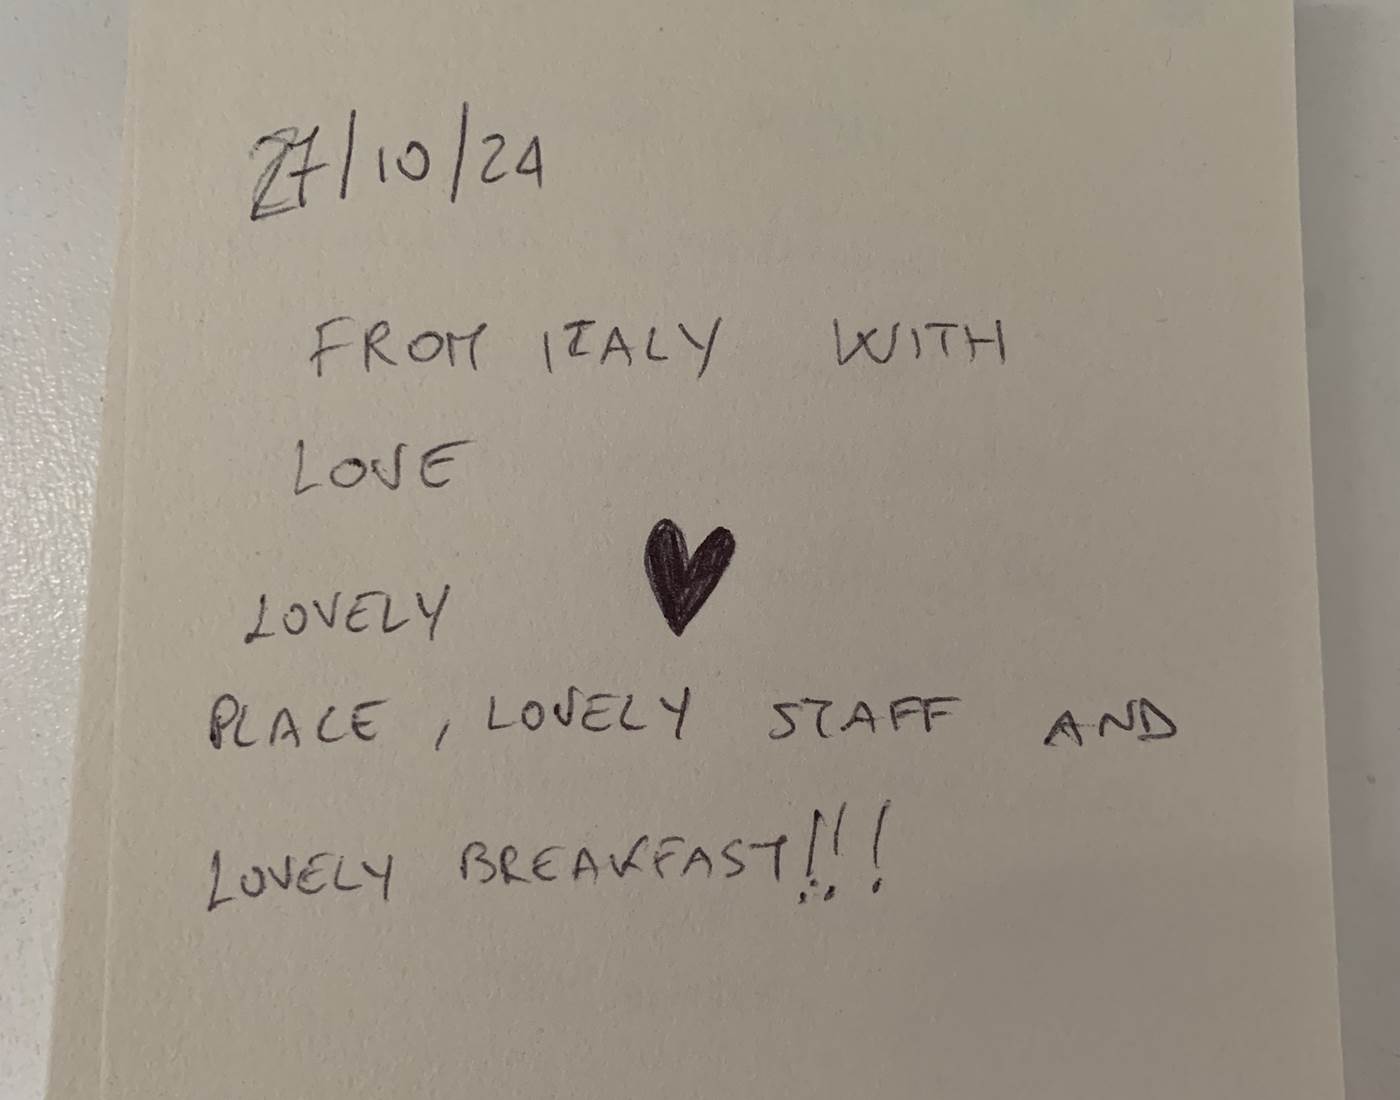 27/10/24
FROM ITALY WITH
LOVE
LOVELY
PLACE, LOVELY STAFF AND
LOVELY BREAKFAST!!!